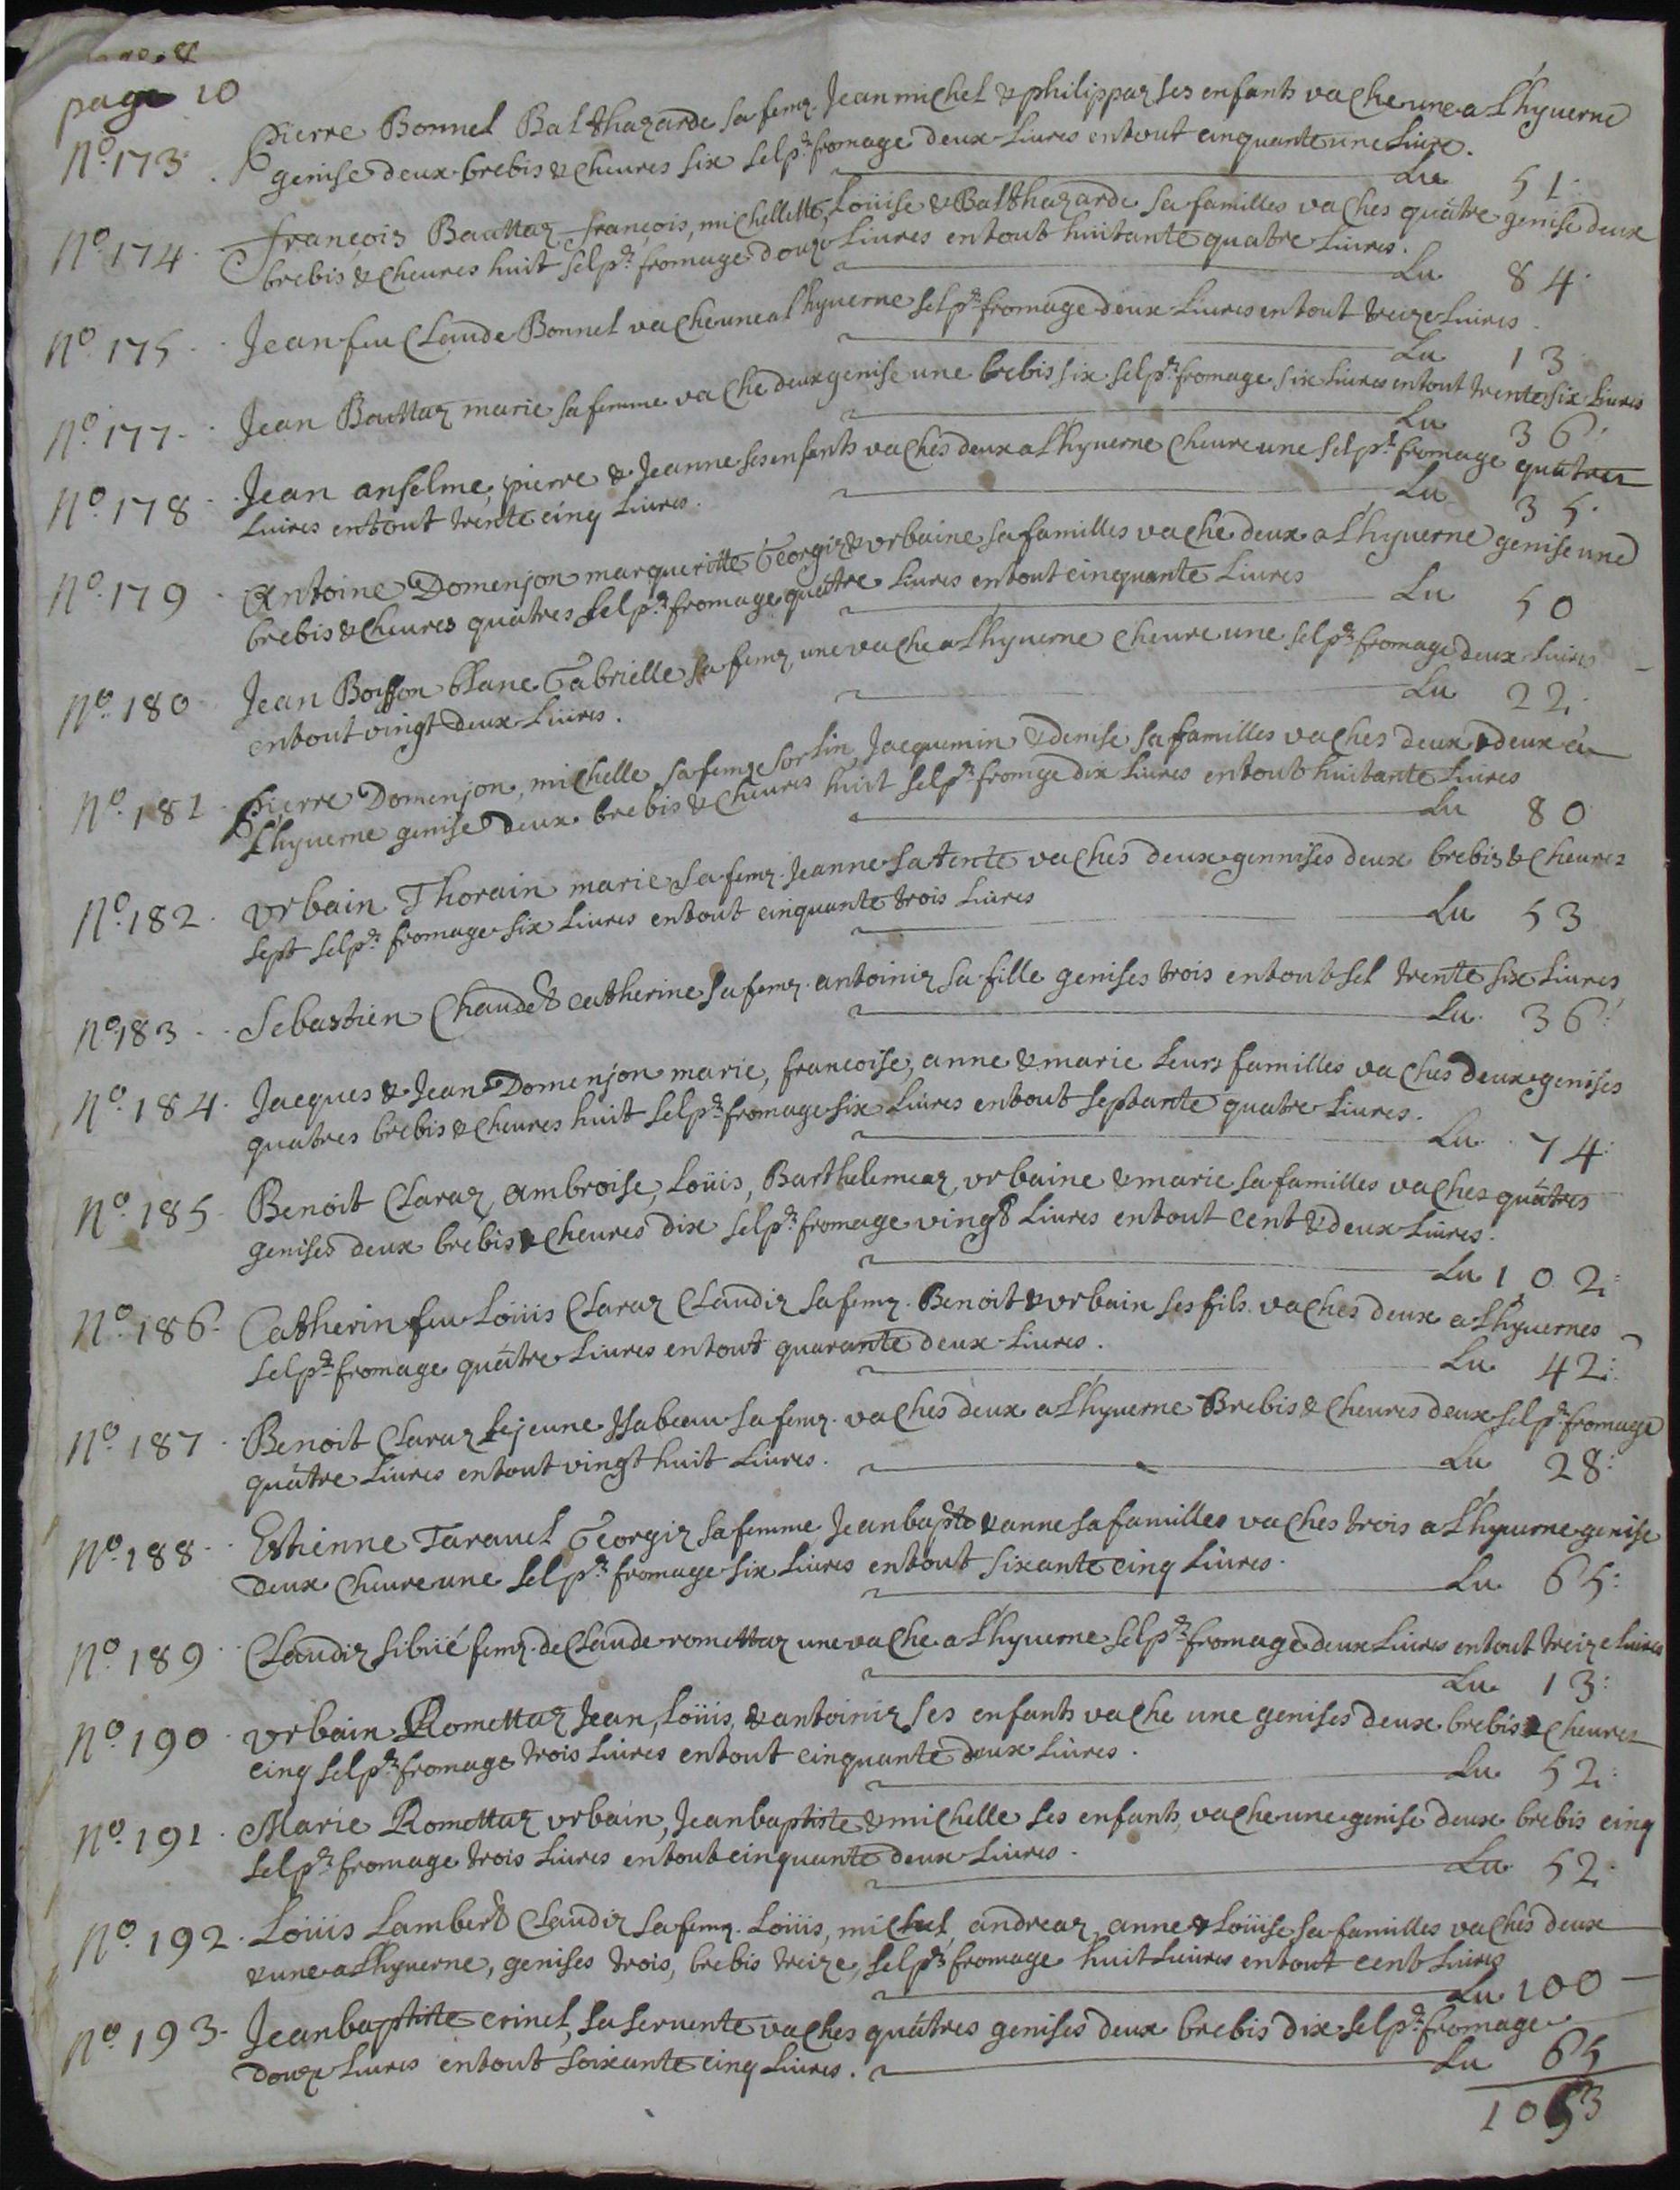 page 10
N.° 173 Pierre Bonnel Balthazarde sa femz. Jean michel & philippaz ses enfants vache une a Lhyuerne
genise deux brebis & cheures six sel p.r fromage deux Liures entout cinquante une Liure.
Lu 51
N.° 174 françois Bauttaz françois, michellette, Loüise & Balthazarde sa familles vaches quätre genise deux
brebis & cheures huit sel p.r fromage douze Liures entout huitante quatre Liures.
Lu 84
N.° 175 Jean feu Claude Bonnel vache une a Lhyuerne sel p.r fromage deux Liures entout treize Liures
Lu 13
N.° 177 Jean Bauttaz marie sa femme vache deux genise une brebis six sel p.r fromage six Liures entout trente six Liures
Lu 36
N.° 178 Jean anselme, pierre & Jeanne ses enfants vaches deux a Lhyuerne cheure une sel p.r fromage quätres
Liures entout trente cinq Liures.
Lu 35
N.° 179 Antoine Domenjon margueritte Georgiz & vrbaine sa familles vache deux a Lhyuerne genise une
brebis & cheures quätres sel p.r fromage quätre Liures entout cinquante Liures
Lu 50
N.° 180 Jean Boisson blanc Gabrielle sa femz, une vache a Lhyuerne cheure une sel p.r fromage deux Liures
entout vingt deux Liures.
Lu 22
N.° 181 Pierre Domenjon, michelle sa femze sorlin Jacquemin & denise sa familles vaches deux & deux a
Lhyuerne genise deux brebis & cheures huit sel p.r fromge dix Liures entout huitante Liures
Lu 80
N.° 182 Vrbain Thorain marie sa femz. Jeanne sa tente vaches deux gennises deux brebis & cheures
sept sel p.r fromage six Liures entout cinquante trois Liures
Lu 53
N.° 183 Sebastien Chaudet Catherine sa femz. antoiniz sa fille genises trois entout sel trente six Liures
Lu 36
N.° 184 Jacques & Jean Domenjon marie, francoise, anne & marie Leurs familles vaches deux genises
quatres brebis & cheures huit sel p.r fromage six Liures entout septante quatre Liures.
Lu 74
N.° 185 Benoit Claraz, ambroise, Loüis, Barthelemeaz, vrbaine & marie sa familles vaches quätres
genises deux brebis & cheures dix sel p.r fromage vingt Liures entout Cent & deux Liures.
Lu 102
N.° 186 Catherin feu Loüis Claraz Claudiz sa femz. Benoit & vrbain ses fils vaches deux a Lhyuernes
sel p.r fromage quätre Liures entout quarante deux Liures.
Lu 42
N.° 187 Benoit Claraz Le jeune Jsabeau sa femz. vaches deux a Lhyuerne Brebis & cheures deux sel p.r fromage
quätre Liures entout vingt huit Liures.
Lu 28
N.° 188 Estienne Tarauel Georgiz sa femme Jeanbapte & anne sa familles vaches trois a Lhyuerne genise
deux cheure une sel p.r fromage six Liures entout sixante cinq Liures.
Lu 65
N.° 189 Claudiz Sibüé femz. de Claude romettaz une vache a Lhyuerne sel p.r fromage deux Liures entout treize Liures
Lu 13
N.° 190 Vrbain Romettaz Jean, Loüis, & antoiniz ses enfants vache une genises deux brebis & cheures
cinq sel p.r fromage trois Liures entout cinquante deux Liures.
Lu 52
N.° 191 Marie Romettaz vrbain, Jeanbaptiste & michelle ses enfants, vache une genise deux brebis cinq
sel p.r fromage trois Liures entout cinquante deux Liures.
Lu 52
N.° 192 Loüis Lambert Claudiz sa femz. Loüis, michel, andreaz, anne & Loüise sa familles vaches deux
& une a Lhyuerne, genises trois, brebis treize, sel p.r fromage huit Liures entout cent Liures
Lu 100
N.° 193 Jeanbaptiste crinel, sa seruente vaches quätres genises deux brebis dix sel p.r fromage
douze Liures entout soixante cinq Liures.
Lu 65
1053